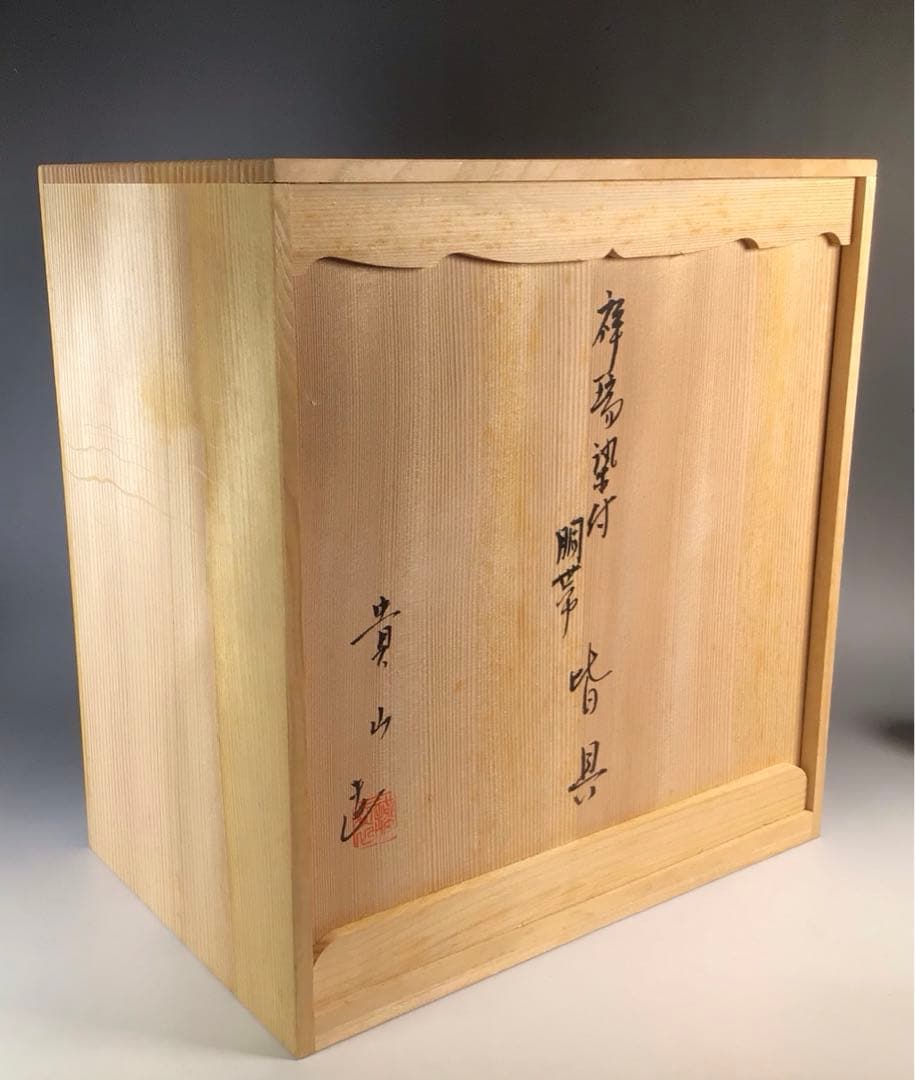 祥瑞染付
胴帯
皆具
貴山造